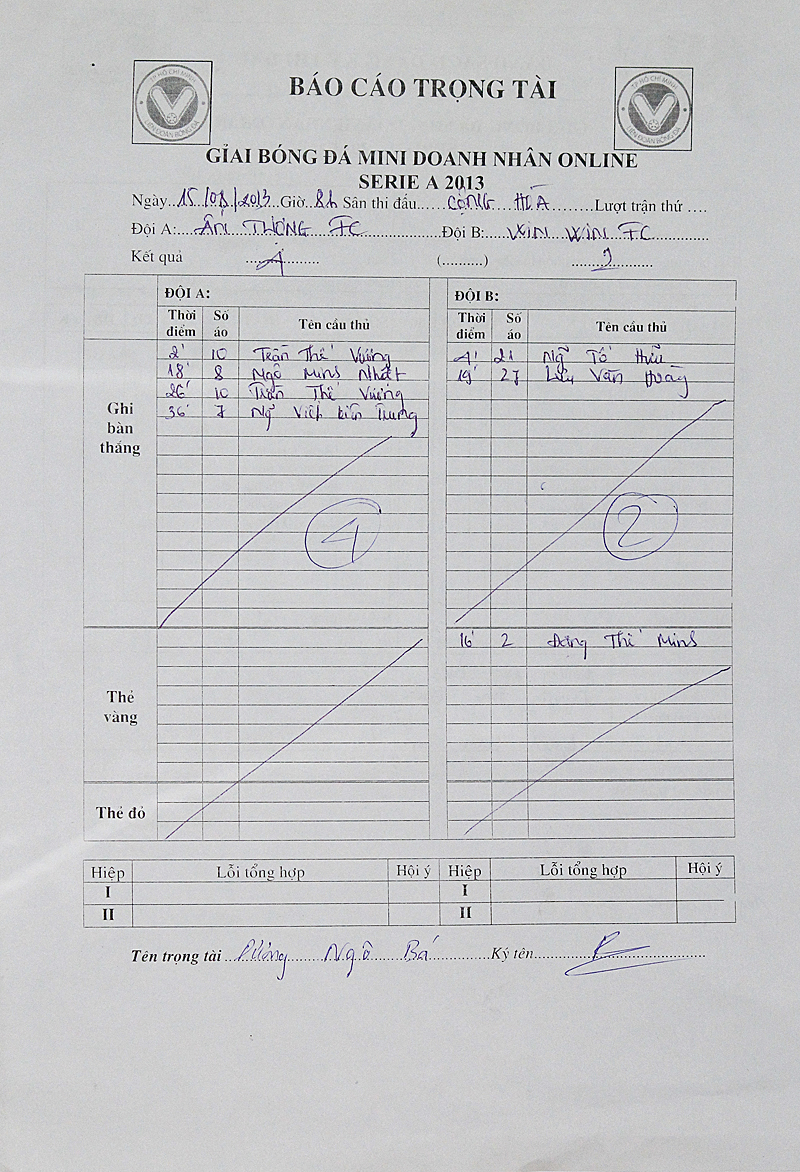 TP HỒ CHÍ MINH
LIÊN ĐOÀN BÓNG ĐÁ
BÁO CÁO TRỌNG TÀI
TP HỒ CHÍ MINH
LIÊN ĐOÀN BÓNG ĐÁ
GIẢI BÓNG ĐÁ MINI DOANH NHÂN ONLINE
SERIE A 2013
Ngày..15/08/2013 Giờ..8h Sân thi đấu.....CỘNG HÒA........Lượt trận thứ ....
Đội A:...ÂN THÔNG FC................Đội B:.....WIN WIN FC..............
Kết quả ......4............ (..........) ......2............
ĐỘI A: ĐỘI B:
Thời điểm Số áo Tên cầu thủ Thời điểm Số áo Tên cầu thủ
Ghi bàn thắng
2' 10 Trần Thế Vương 4' 21 Ng~ Tố Hữu
18' 8 Ngô Minh Nhất 19' 27 Lưu Văn Hoàng
26' 10 Trần Thế Vương
36' 7 Ng~ Việt Kiến Trung
4 2
Thẻ vàng
16' 2 Đặng Thế Minh
Thẻ đỏ
Hiệp Lỗi tổng hợp Hội ý Hiệp Lỗi tổng hợp Hội ý
I I
II II
Tên trọng tài ... Ngô Bá................Ký tên...............................